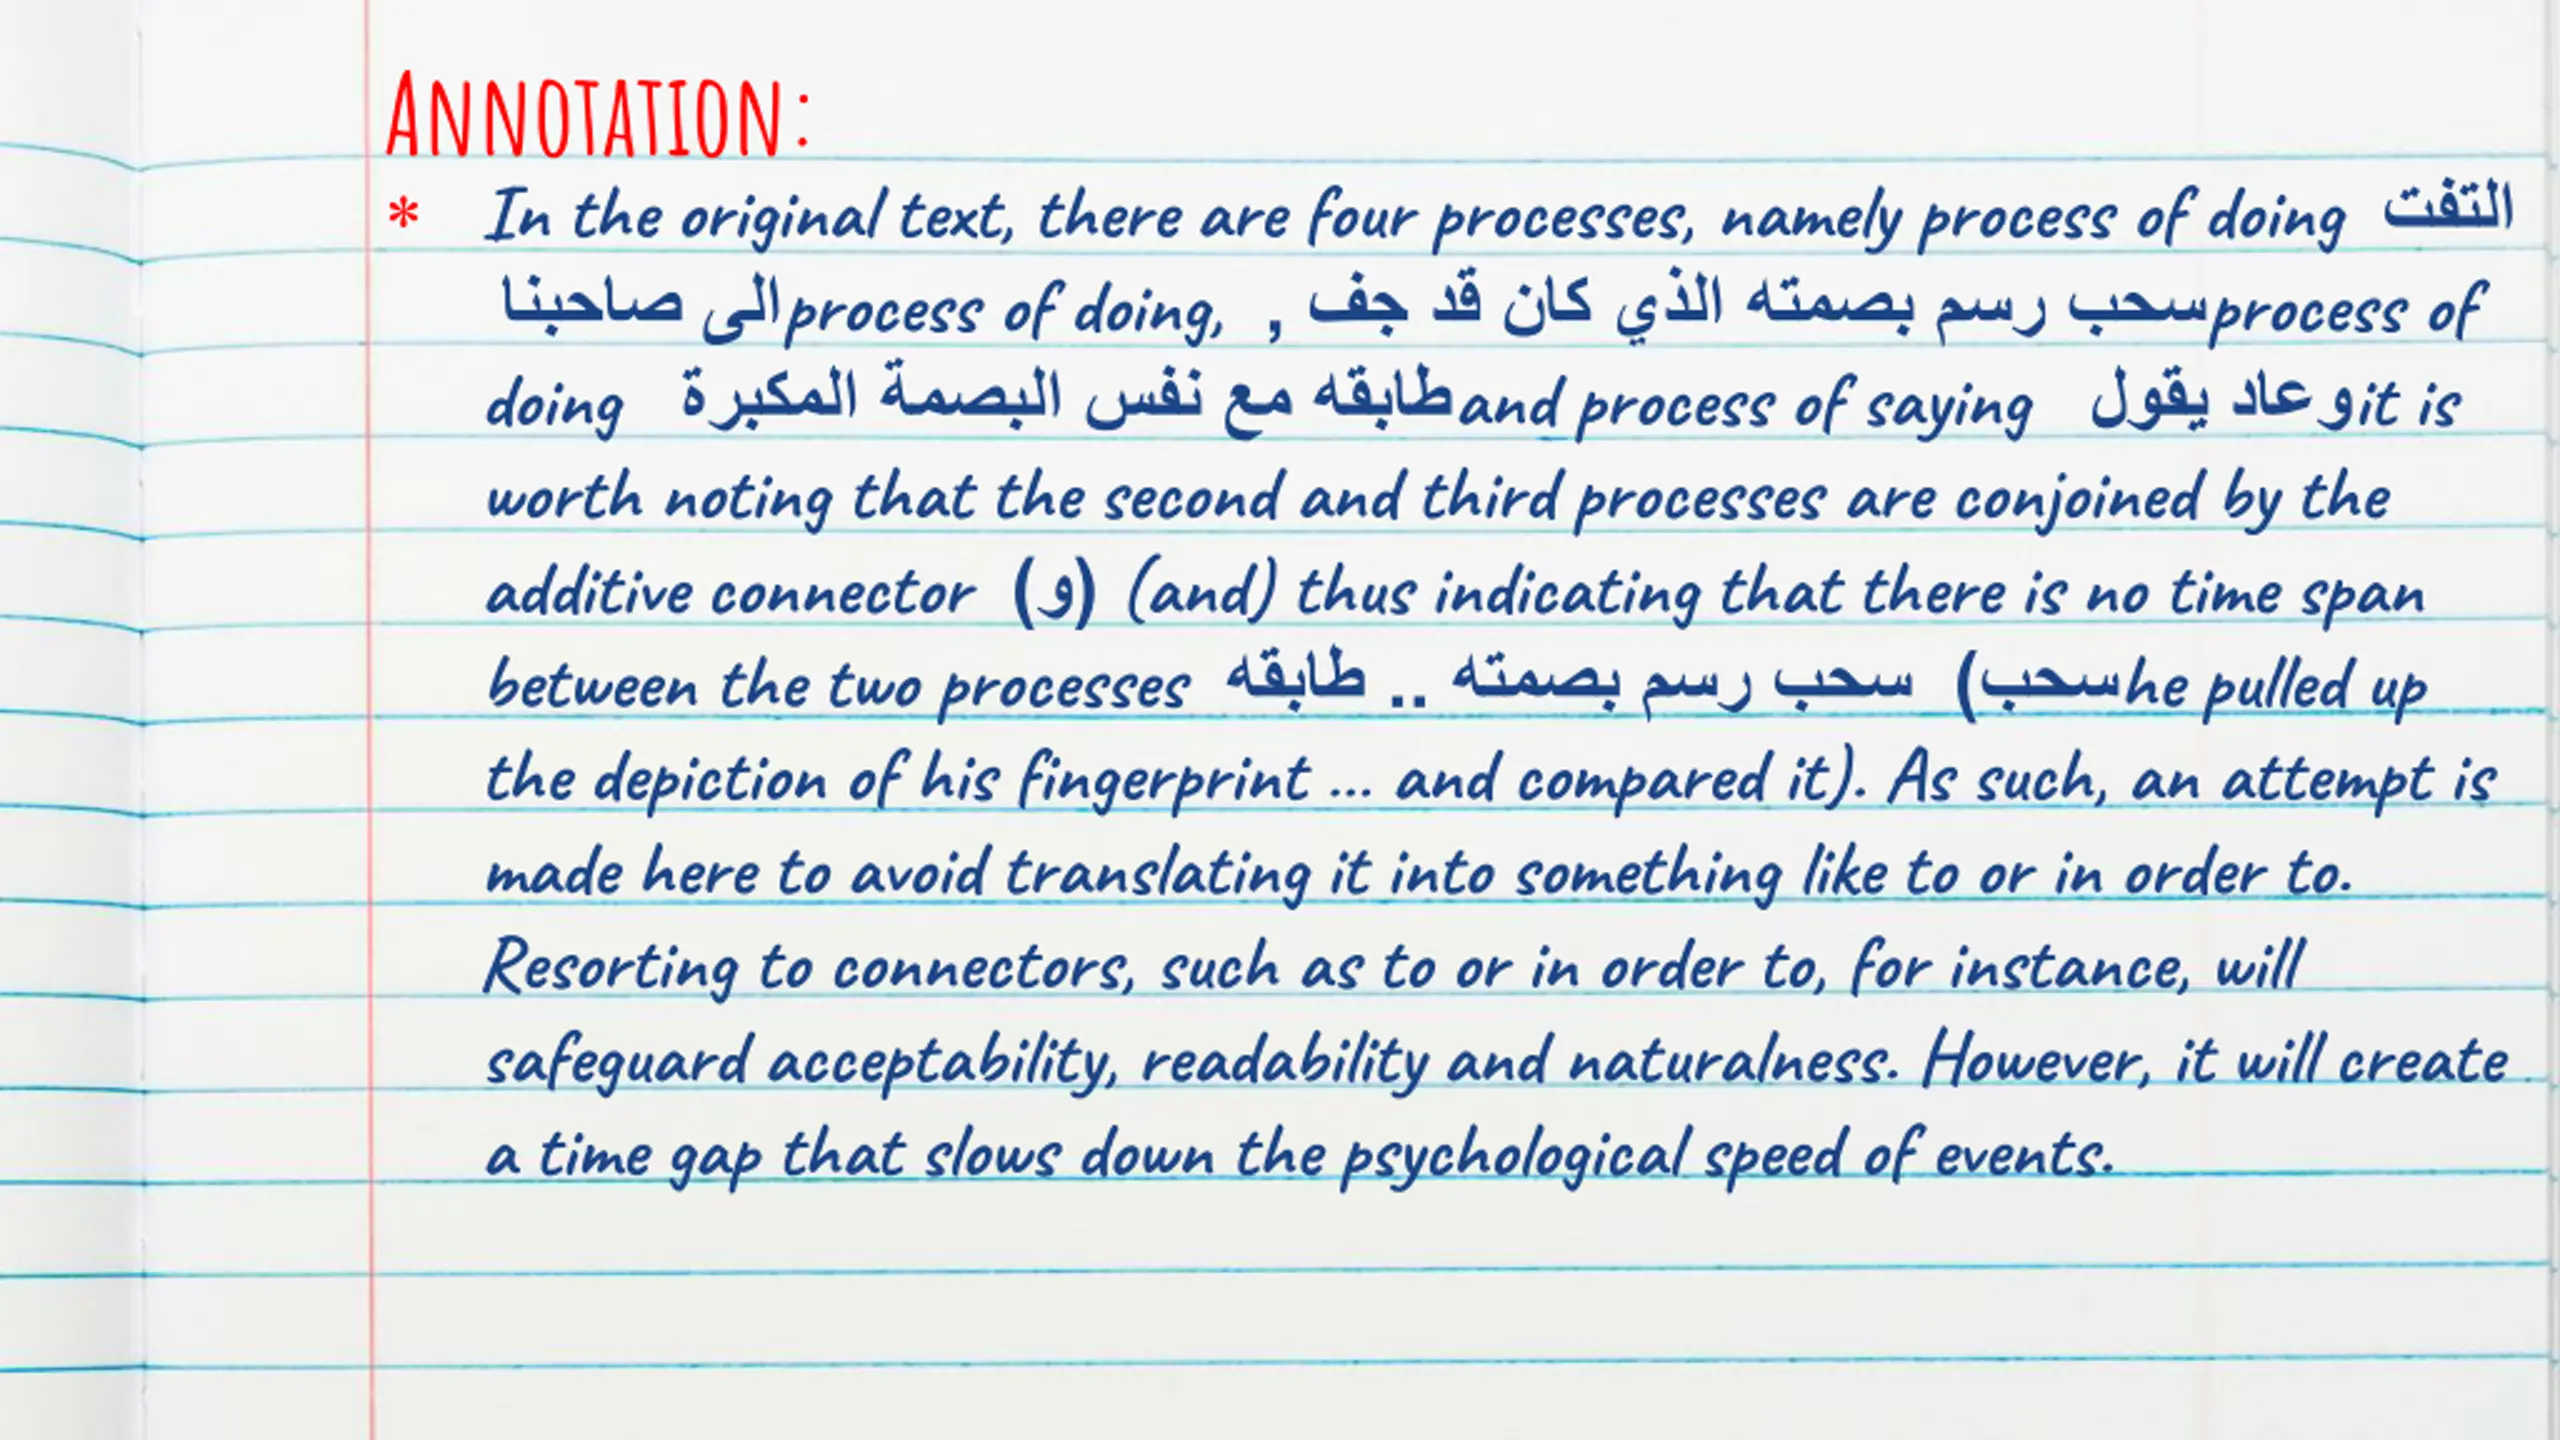 ANNOTATION:
* In the original text, there are four processes, namely process of doing التفت
الى صاحبنا process of doing, , سحب رسم بصمته الذي كان قد جف process of
doing طابقه مع نفس البصمة المكبرة and process of saying وعاد يقول it is
worth noting that the second and third processes are conjoined by the
additive connector (و) (and) thus indicating that there is no time span
between the two processes سحب رسم بصمته .. طابقه (سحب he pulled up
the depiction of his fingerprint ... and compared it). As such, an attempt is
made here to avoid translating it into something like to or in order to.
Resorting to connectors, such as to or in order to, for instance, will
safeguard acceptability, readability and naturalness. However, it will create
a time gap that slows down the psychological speed of events.